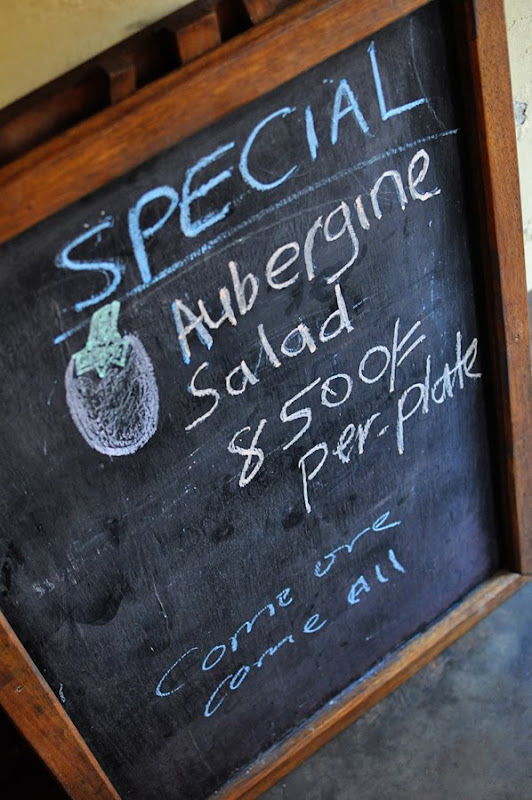 SPECIAL
Aubergine
Salad
8500/=
per-plate
Come ore
Come All